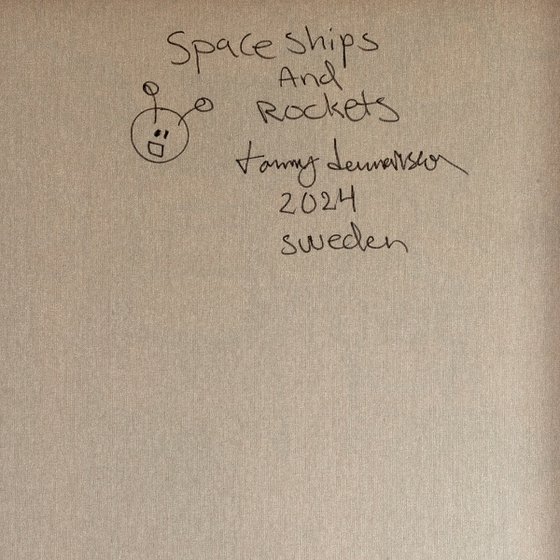 Space ships
And
Rockets
tommy lennartsson
2024
sweden